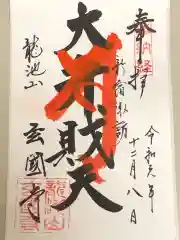 奉拝
新宿諏訪
令和元年
十二月八日
大弁財天
龍池山
玄國寺